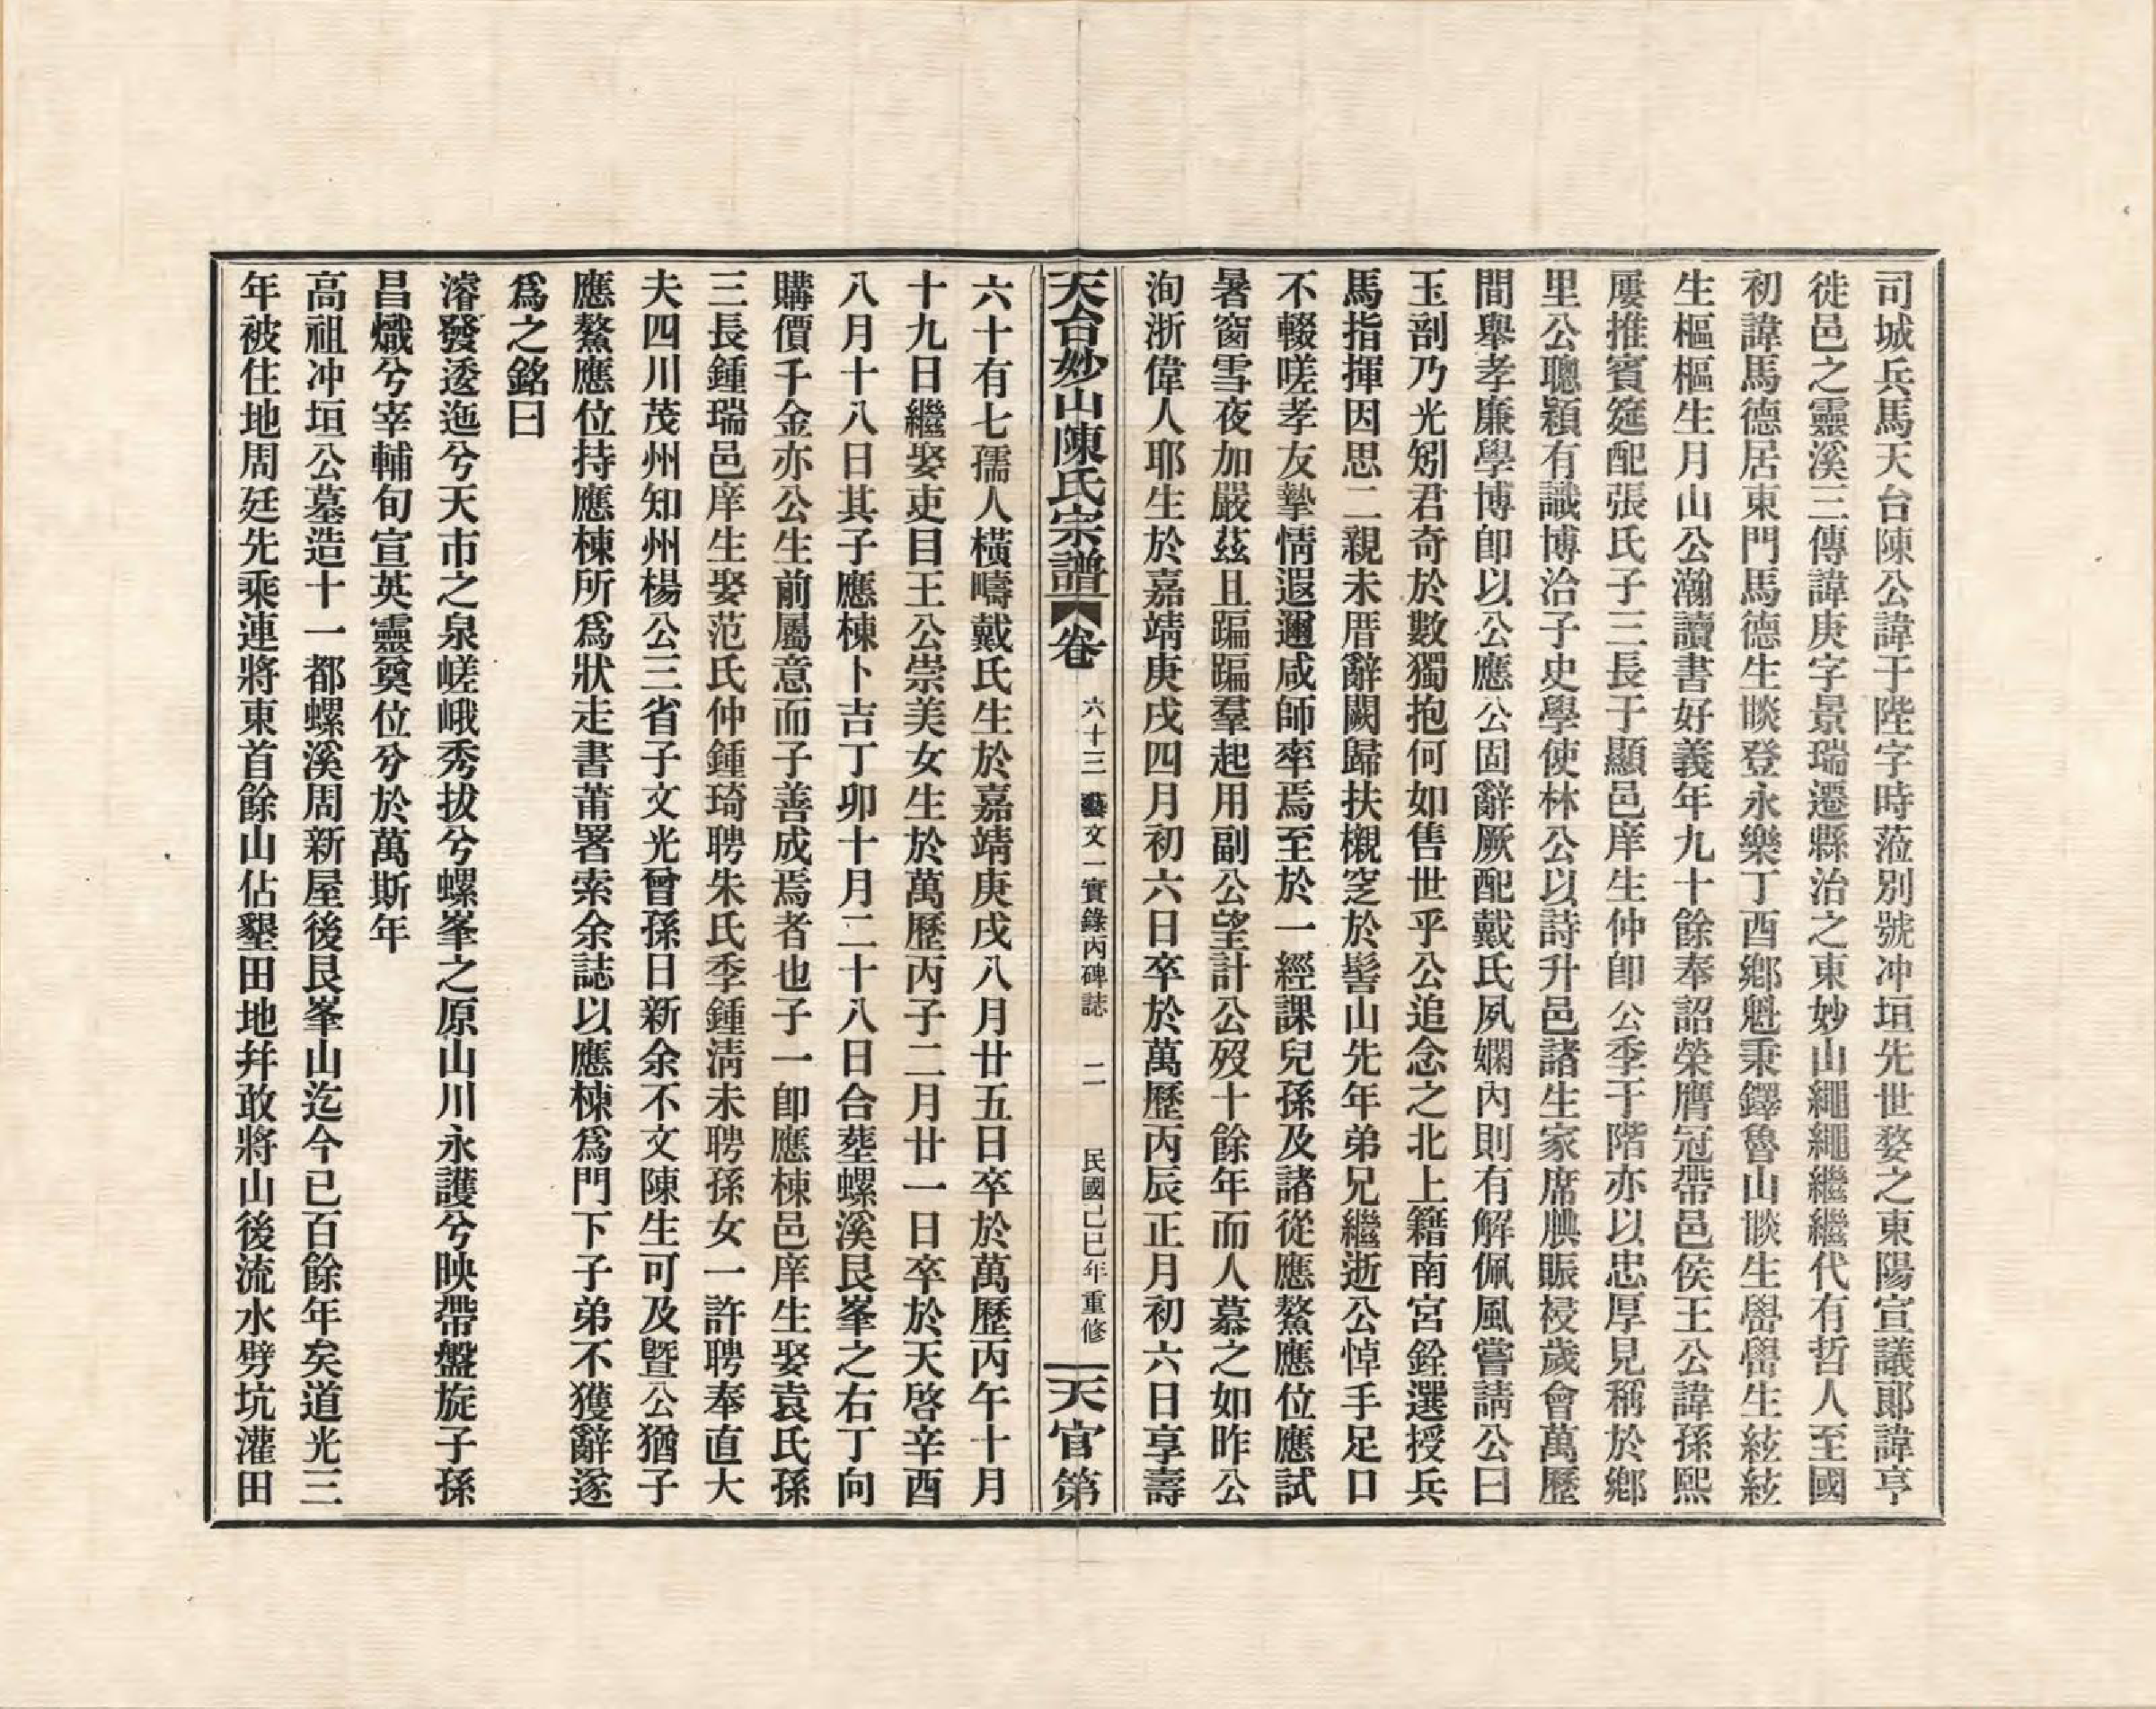 司城兵馬天台陳公諱于陛字時蒞別號冲垣先世婺之東陽宣議郎諱亨
徙邑之靈溪三傳諱庚字景瑞遷縣治之東妙山繩繩繼繼代有哲人至國
初諱馬德居東門馬德生睒登永樂丁酉鄉魁秉鐸魯山睒生嚳嚳生絃絃
生樞樞生月山公瀚讀書好義年九十餘奉詔榮膺冠帶邑侯王公諱孫熙
屢推賓筵配張氏子三長于顯邑庠生仲卽公季于階亦以忠厚見稱於鄉
里公聰穎有識博洽子史學使林公以詩升邑諸生家席腆賑祲歲會萬歷
間舉孝廉學博卽以公應公固辭厥配戴氏夙嫻內則有解佩風嘗請公曰
玉剖乃光矧君奇於數獨抱何如售世乎公追念之北上籍南宮銓選授兵
馬指揮因思二親未厝辭闕歸扶櫬窆於髻山先年弟兄繼逝公悼手足口
不輟嗟孝友摯情遐邇咸師率焉至於一經課兒孫及諸從應鰲應位應試
暑窗雪夜加嚴茲且踹踹羣起用副公望計公歿十餘年而人慕之如昨公
洵浙偉人耶生於嘉靖庚戌四月初六日卒於萬歷丙辰正月初六日享壽
天台妙山陳氏宗譜 卷 六十三 藝文一實錄丙碑誌 二 民國己巳年重修 天官第
六十有七孺人橫疇戴氏生於嘉靖庚戌八月廿五日卒於萬歷丙午十月
十九日繼娶吏目王公崇美女生於萬歷丙子二月廿一日卒於天啓辛酉
八月十八日其子應棟卜吉丁卯十月二十八日合塟螺溪艮峯之右丁向
購價千金亦公生前屬意而子善成焉者也子一卽應棟邑庠生娶袁氏孫
三長鍾瑞邑庠生娶范氏仲鍾琦聘朱氏季鍾淸未聘孫女一許聘奉直大
夫四川茂州知州楊公三省子文光曾孫日新余不文陳生可及暨公猶子
應鰲應位持應棟所爲狀走書莆署索余誌以應棟爲門下子弟不獲辭遂
爲之銘曰
濬發逶迤兮天市之泉嵯峨秀拔兮螺峯之原山川永護兮映帶盤旋子孫
昌熾兮宰輔旬宣英靈奠位兮於萬斯年
高祖冲垣公墓造十一都螺溪周新屋後艮峯山迄今已百餘年矣道光三
年被住地周廷先乘連將東首餘山佔墾田地幷敢將山後流水劈坑灌田